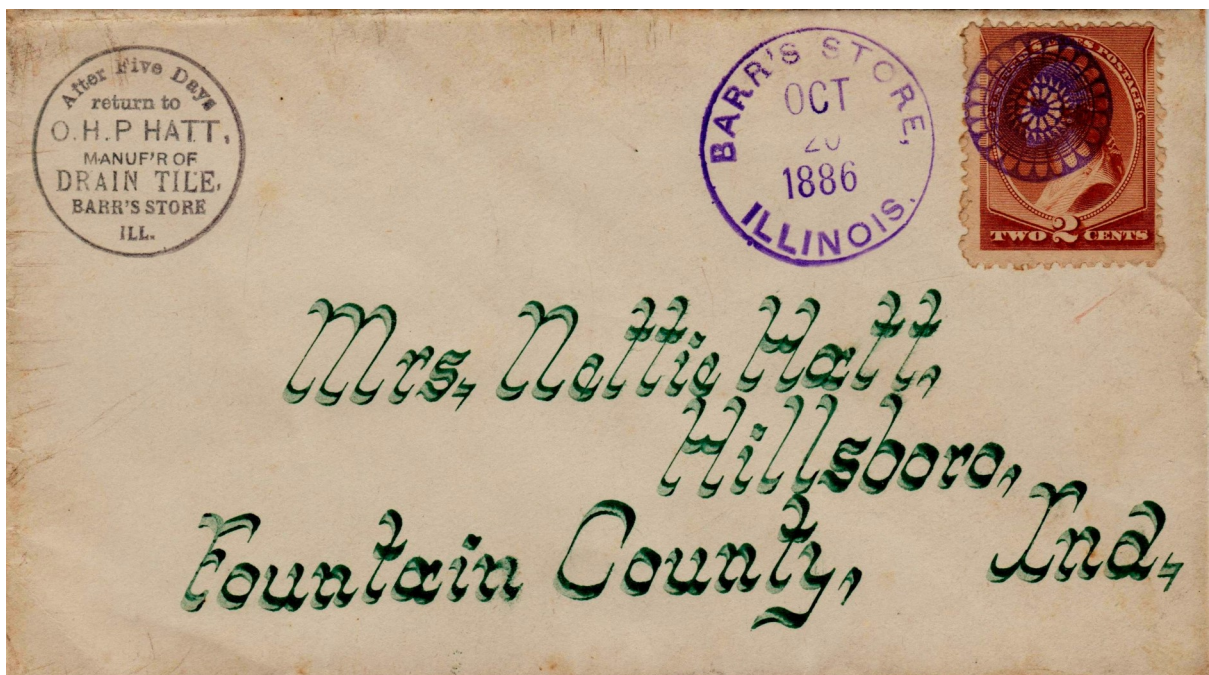 After Five Days
return to
O.H.P HATT,
MANUF'R OF
DRAIN TILE,
BARR'S STORE
ILL.
BARR'S STORE,
OCT
20
1886
ILLINOIS.
CENTS POSTAGE
TWO 2 CENTS
Mrs, Nettie Hatt,
Hillsboro,
Fountain County, Ind,